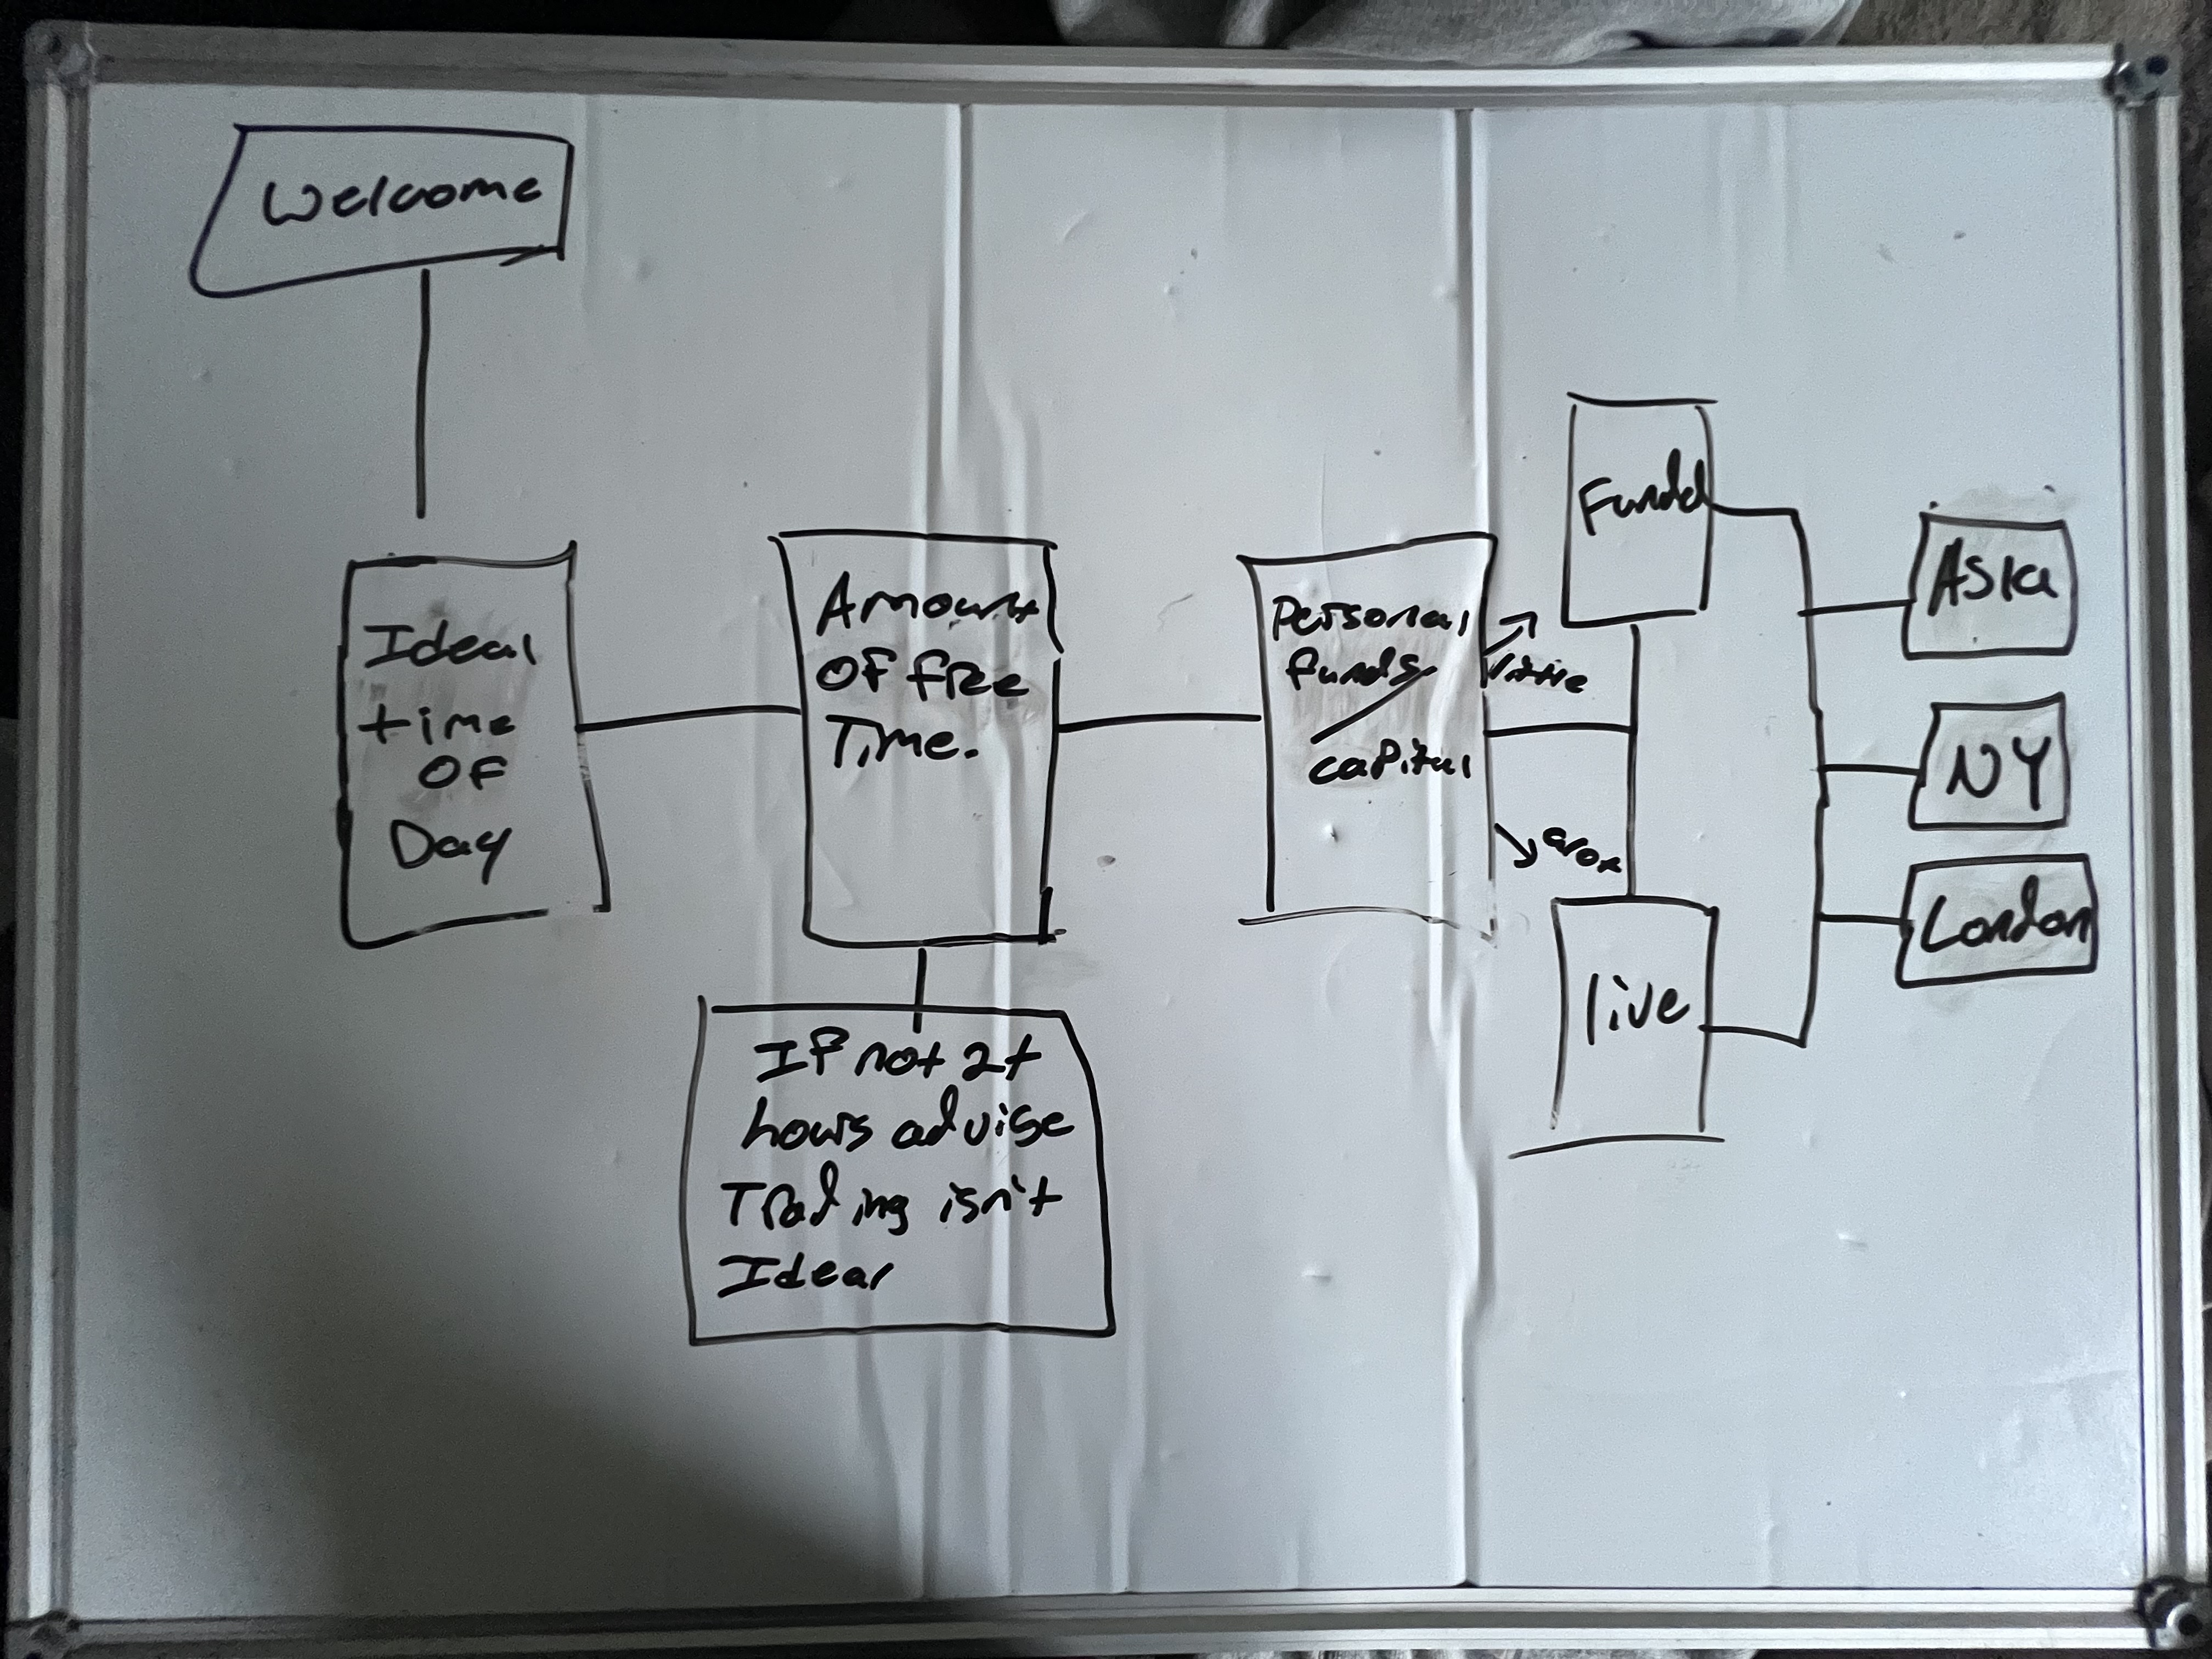 Welcome
Ideal
time
OF
Day
Amount
Of free
Time.
If not 2+
hours advise
Trading isn't
Idear
Personal
funds/
capital
Fundd
live
Asia
NY
London